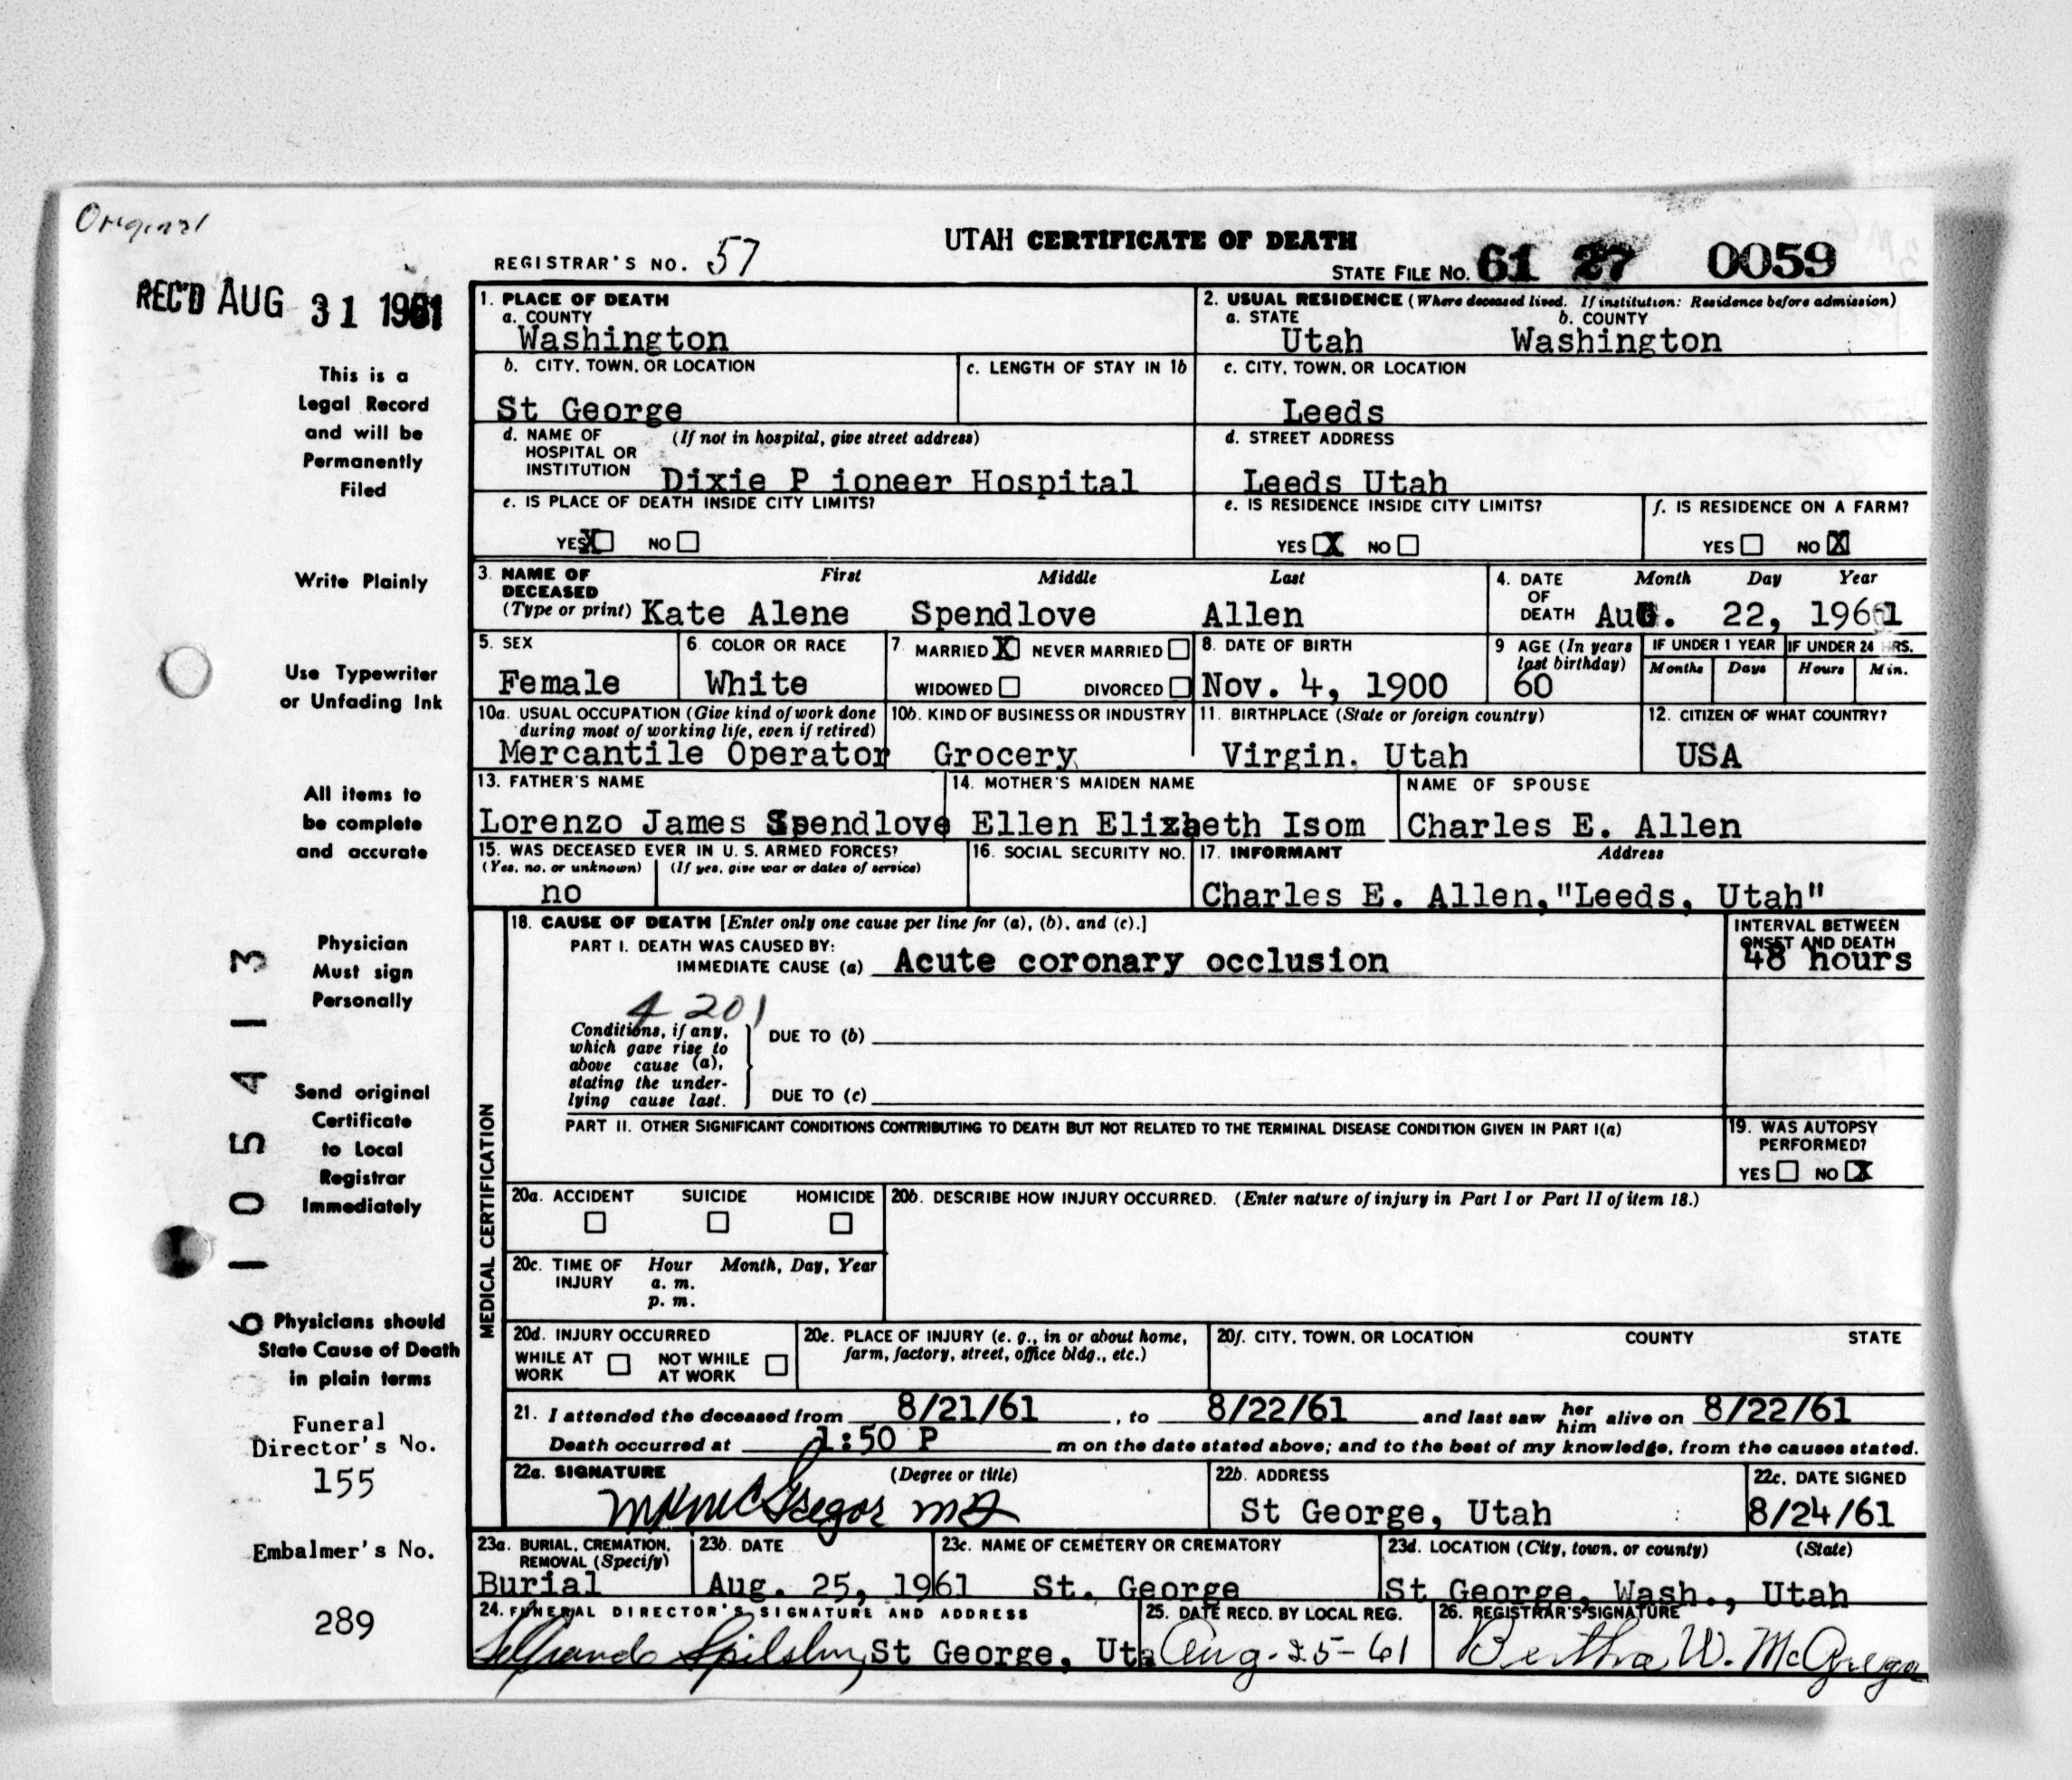 Original
UTAH CERTIFICATE OF DEATH
REGISTRAR'S NO. 57
STATE FILE NO. 61 27 0059
REC'D AUG 31 1961
This is a
Legal Record
and will be
Permanently
Filed
Write Plainly
Use Typewriter
or Unfading Ink
All items to
be complete
and accurate
Physician
Must sign
Personally
Send original
Certificate
to Local
Registrar
Immediately
Physicians should
State Cause of Death
in plain terms
Funeral
Director's No.
155
Embalmer's No.
289
6 1 0 5 4 1 3
1. PLACE OF DEATH
a. COUNTY
Washington
2. USUAL RESIDENCE (Where deceased lived. If institution: Residence before admission)
a. STATE b. COUNTY
Utah Washington
b. CITY, TOWN, OR LOCATION c. LENGTH OF STAY IN 1b
St George
c. CITY, TOWN, OR LOCATION
Leeds
d. NAME OF HOSPITAL OR INSTITUTION (If not in hospital, give street address)
Dixie P ioneer Hospital
d. STREET ADDRESS
Leeds Utah
e. IS PLACE OF DEATH INSIDE CITY LIMITS?
YES X NO
e. IS RESIDENCE INSIDE CITY LIMITS?
YES X NO
f. IS RESIDENCE ON A FARM?
YES NO X
3. NAME OF DECEASED (Type or print) First Middle Last
Kate Alene Spendlove Allen
4. DATE OF DEATH Month Day Year
Aug. 22, 1961
5. SEX
Female
6. COLOR OR RACE
White
7. MARRIED X NEVER MARRIED
WIDOWED DIVORCED
8. DATE OF BIRTH
Nov. 4, 1900
9 AGE (In years last birthday)
60
IF UNDER 1 YEAR IF UNDER 24 HRS.
Months Days Hours Min.
10a. USUAL OCCUPATION (Give kind of work done during most of working life, even if retired)
Mercantile Operator
10b. KIND OF BUSINESS OR INDUSTRY
Grocery
11. BIRTHPLACE (State or foreign country)
Virgin, Utah
12. CITIZEN OF WHAT COUNTRY?
USA
13. FATHER'S NAME
Lorenzo James Spendlove
14. MOTHER'S MAIDEN NAME
Ellen Elizabeth Isom
NAME OF SPOUSE
Charles E. Allen
15. WAS DECEASED EVER IN U. S. ARMED FORCES?
(Yes, no, or unknown) (If yes, give war or dates of service)
no
16. SOCIAL SECURITY NO.
17. INFORMANT Address
Charles E. Allen, "Leeds, Utah"
MEDICAL CERTIFICATION
18. CAUSE OF DEATH [Enter only one cause per line for (a), (b), and (c).]
PART I. DEATH WAS CAUSED BY:
IMMEDIATE CAUSE (a) Acute coronary occlusion
INTERVAL BETWEEN ONSET AND DEATH
48 hours
4 201
Conditions, if any, which gave rise to above cause (a), stating the underlying cause last.
DUE TO (b)
DUE TO (c)
PART II. OTHER SIGNIFICANT CONDITIONS CONTRIBUTING TO DEATH BUT NOT RELATED TO THE TERMINAL DISEASE CONDITION GIVEN IN PART I(a)
19. WAS AUTOPSY PERFORMED?
YES NO X
20a. ACCIDENT SUICIDE HOMICIDE
20b. DESCRIBE HOW INJURY OCCURRED. (Enter nature of injury in Part I or Part II of item 18.)
20c. TIME OF INJURY Hour Month, Day, Year
a. m.
p. m.
20d. INJURY OCCURRED
WHILE AT WORK NOT WHILE AT WORK
20e. PLACE OF INJURY (e. g., in or about home, farm, factory, street, office bldg., etc.)
20f. CITY, TOWN, OR LOCATION COUNTY STATE
21. I attended the deceased from 8/21/61, to 8/22/61 and last saw her him alive on 8/22/61
Death occurred at 1:50 P m on the date stated above; and to the best of my knowledge, from the causes stated.
22a. SIGNATURE (Degree or title)
McGregor MD
22b. ADDRESS
St George, Utah
22c. DATE SIGNED
8/24/61
23a. BURIAL, CREMATION, REMOVAL (Specify)
Burial
23b. DATE
Aug. 25, 1961
23c. NAME OF CEMETERY OR CREMATORY
St. George
23d. LOCATION (City, town, or county) (State)
St George, Wash., Utah
24. FUNERAL DIRECTOR'S SIGNATURE AND ADDRESS
Spilsbury St George, Uta
25. DATE RECD. BY LOCAL REG.
Aug-25-61
26. REGISTRAR'S SIGNATURE
Bertha W. McGregor